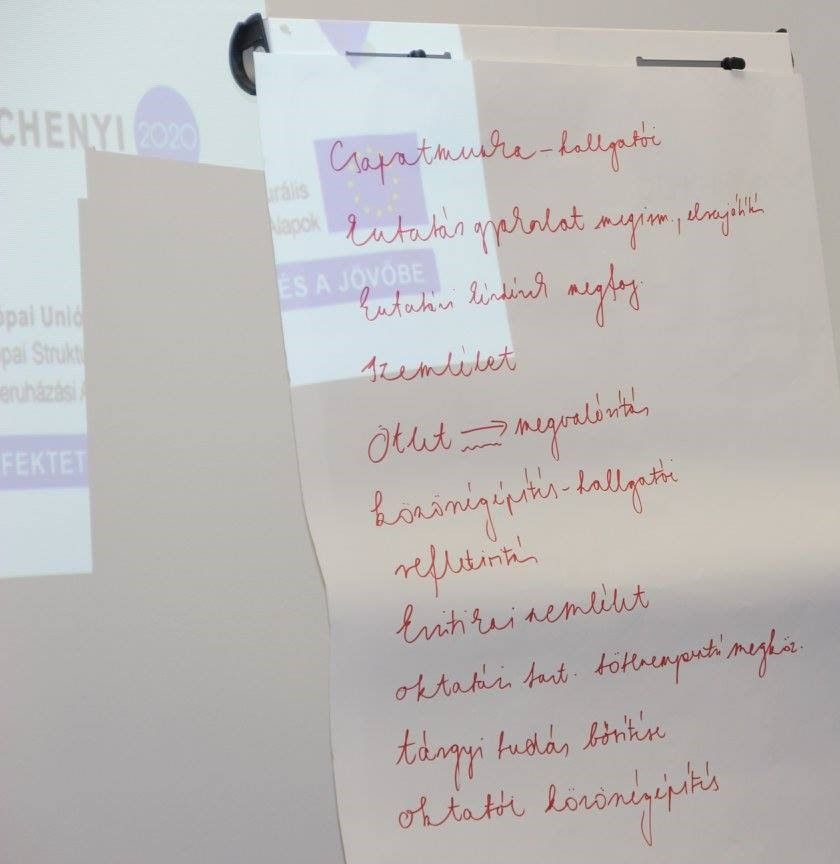 CHENYI 2020
urális
Alapok
ÉS A JÖVŐBE
ópai Unió
pai Struktu
eruházási A
FEKTET
Csapatmunka – hallgatói
kutatás gyakorlat megism., elsajátítás
kutatási kérdések megfog.
szemlélet
Ötlet → megvalósítás
közösségépítés – hallgatói
reflektivitás
kritikai szemlélet
oktatási tart. többszempontú megköz.
tárgyi tudás bővítése
oktatói közösségépítés